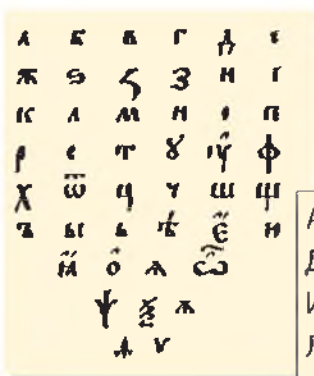 а б в г д є
ж ѕ ꙁ з и і
к л м н о п
р с т ꙋ у ф
х ѿ ц ч ш щ
ъ ы ь ѣ є н
ѧ ѽ
ѱ ѯ ѫ
ѵ
А
Д
И
Л